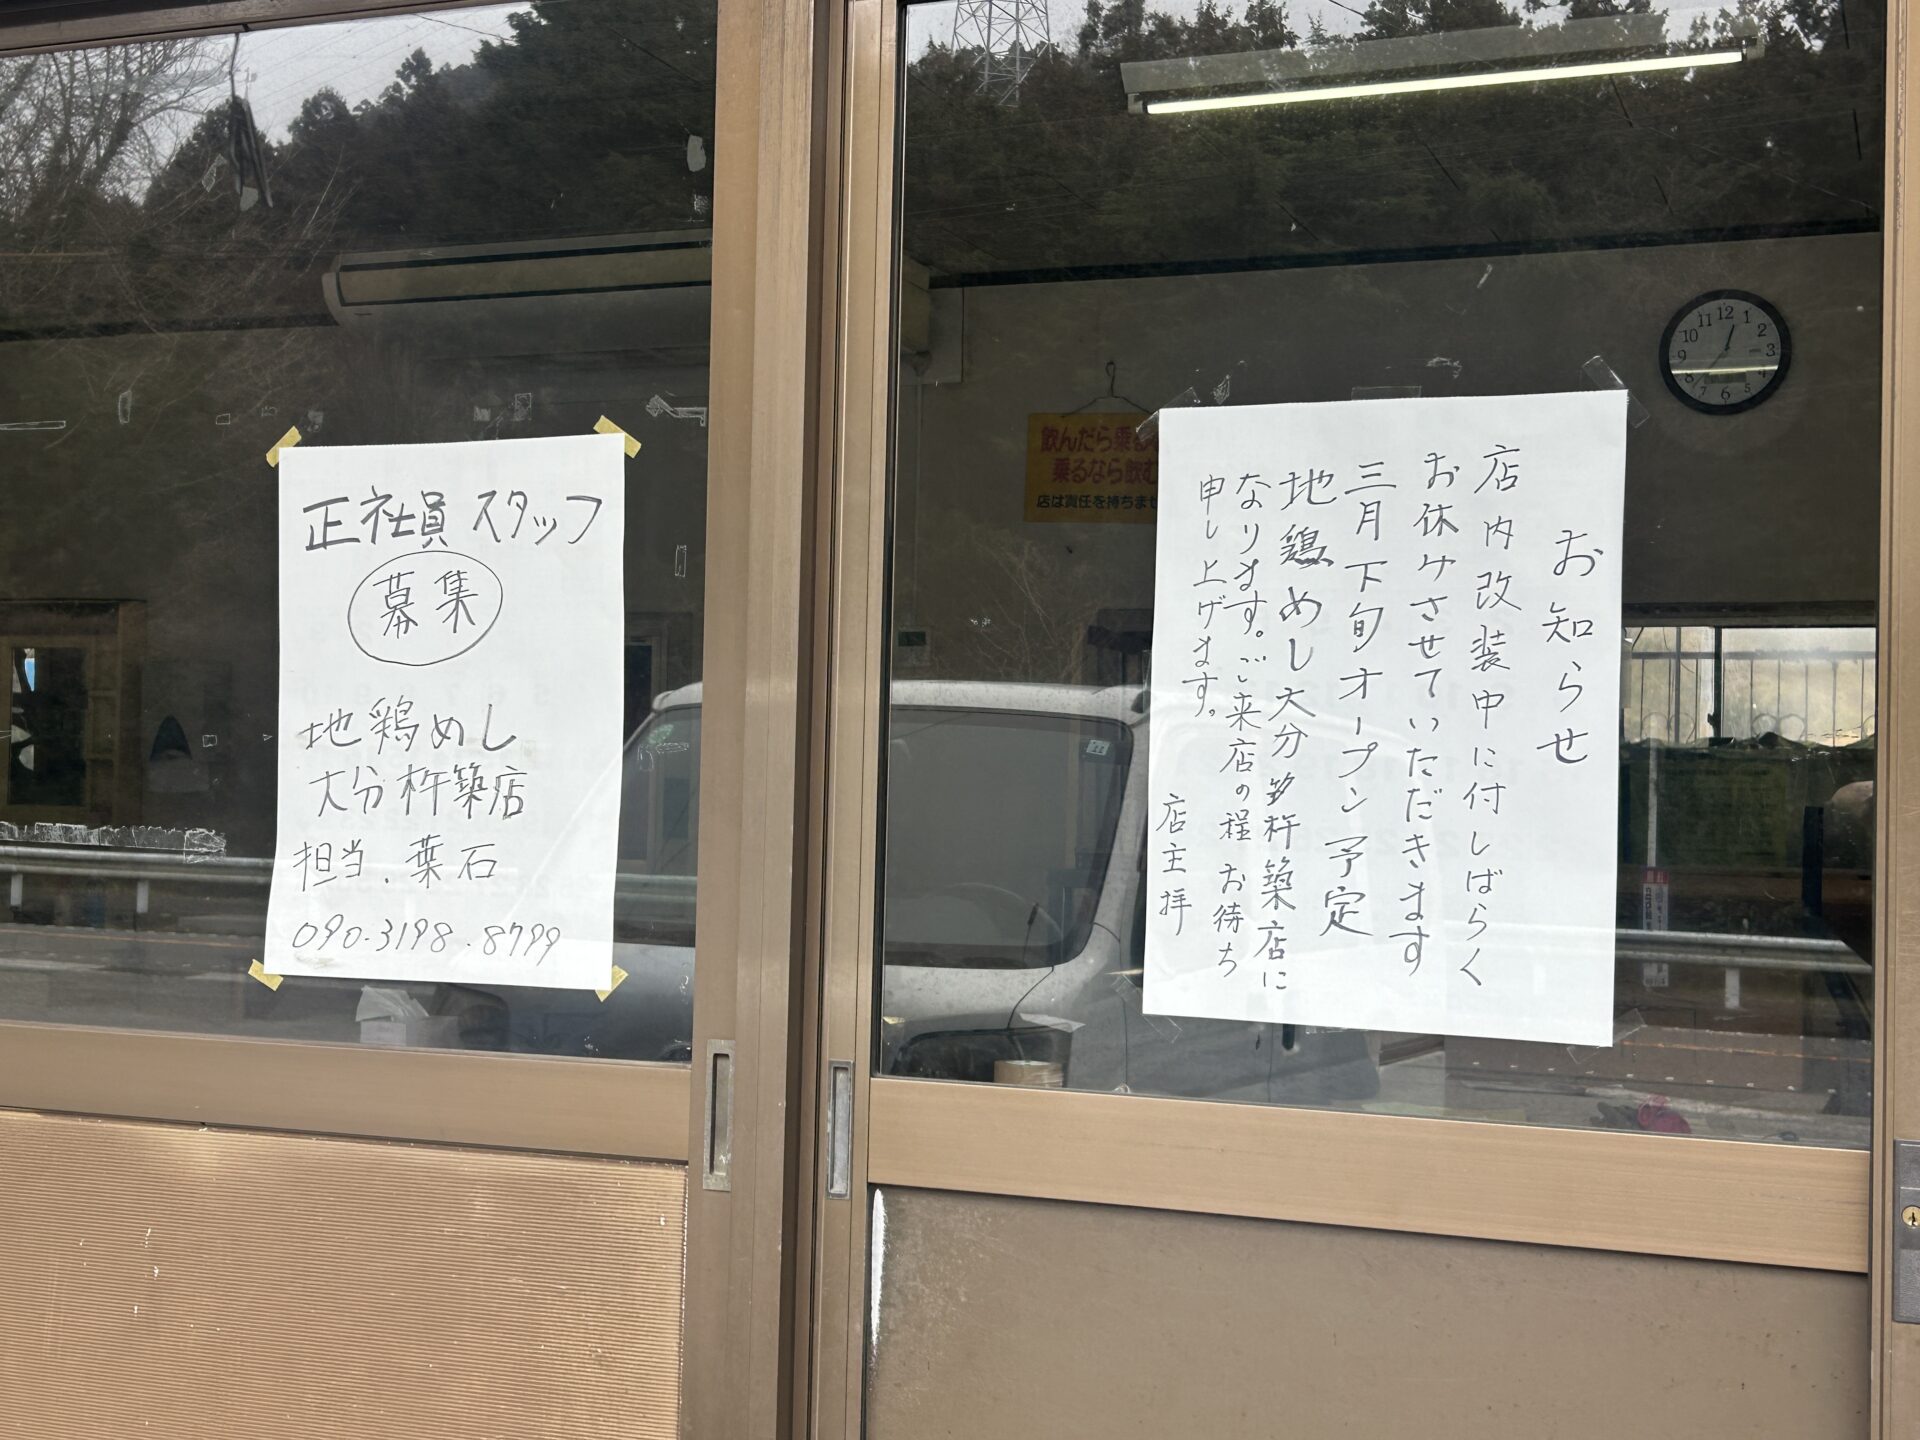 正社員スタッフ
募集
地鶏めし
大分杵築店
担当.葉石
090-3198-8799
飲んだら乗る
乗るなら飲む
店は責任を持ちませ
お知らせ
店内改装中に付しばらく
お休けさせていただきます
三月下旬オープン予定
地鶏めし大分杵築店に
なります。ご来店の程お待ち
申し上げます。
店主拝
12
1
2
3
4
5
6
7
8
9
10
11